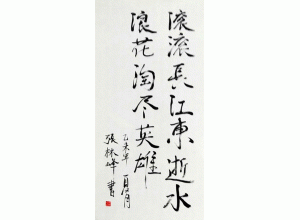 滚滚長江東逝水
浪花淘尽英雄
乙未年夏月
張林峰書